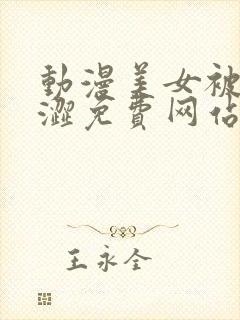 動漫美女被
澀免費网佔
王永全